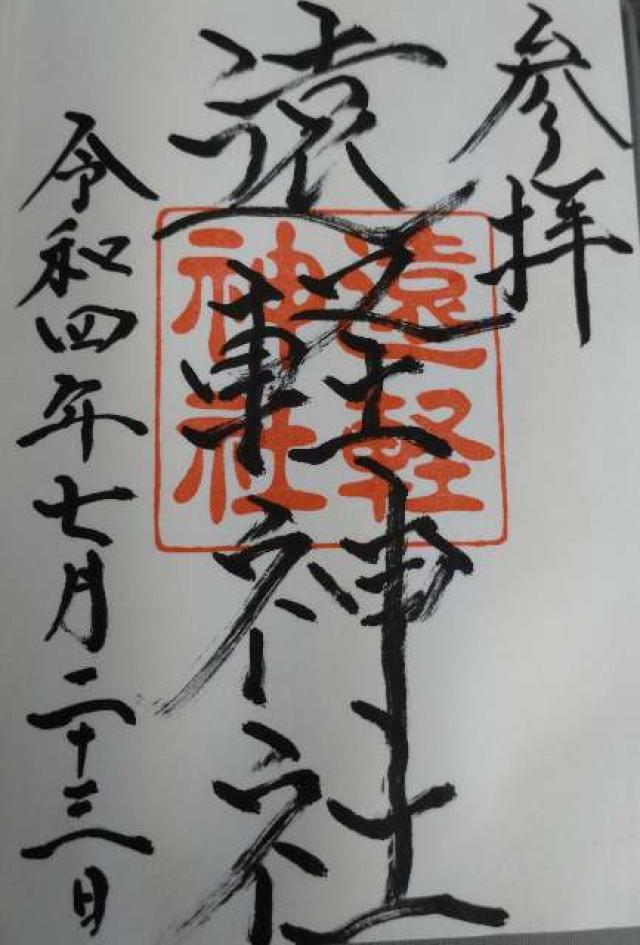 参拝
遠軽神社
遠軽
神社
令和四年七月二十三日